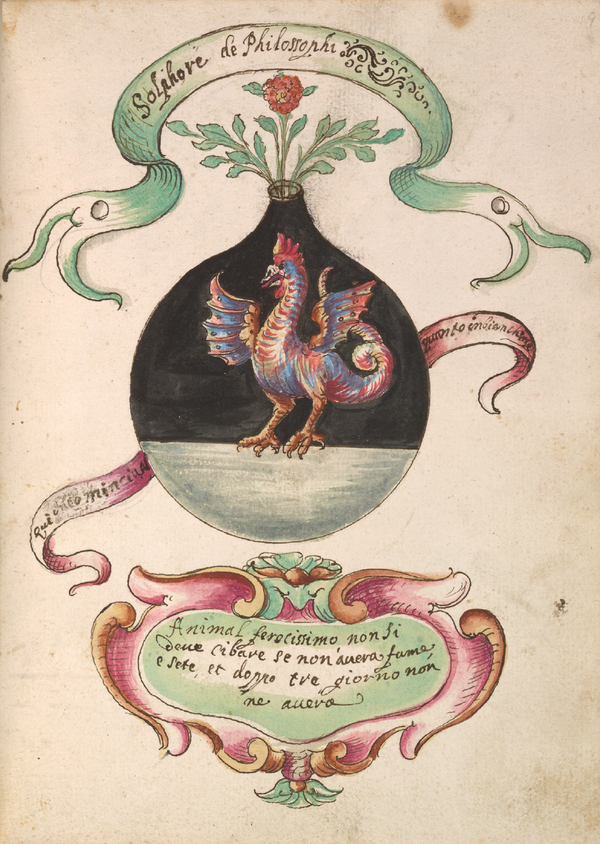 Solphore de Philosophi
quanto
mincia
Animal ferocissimo non si
deue cibare se non auera fame
e sete, et doppo tre giorno non
ne auera
9